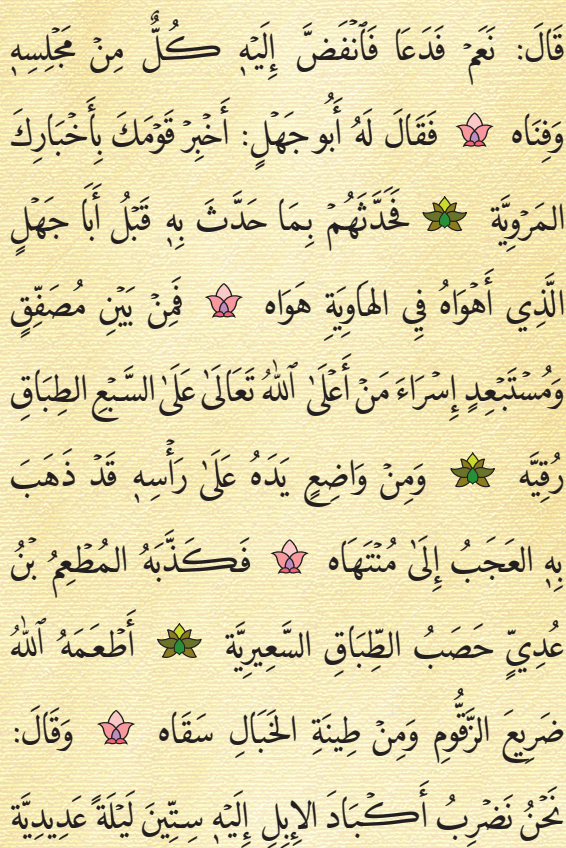 قَالَ: نَعَمْ فَدَعَا فَٱنْفَضَّ إِلَيْهِ كُلٌّ مِنْ مَجْلِسِهِ
وَفِنَاه فَقَالَ لَهُ أَبُو جَهْلٍ: أَخْبِرْ قَوْمَكَ بِأَخْبَارِكَ
المَرْوِيَّة فَحَدَّثَهُمْ بِمَا حَدَّثَ بِهِ قَبْلُ أَبَا جَهْلٍ
الَّذِي أَهْوَاهُ فِي الهَاوِيَةِ هَوَاه فَمِنْ بَيْنِ مُصَفِّقٍ
وَمُسْتَبْعِدٍ إِسْرَاءَ مَنْ أَعْلَىٰ ٱللهُ تَعَالَىٰ عَلَىٰ السَّبْعِ الطِبَاقِ
رُقِيَّه وَمِنْ وَاضِعٍ يَدَهُ عَلَىٰ رَأْسِهِ قَدْ ذَهَبَ
بِهِ العَجَبُ إِلَىٰ مُنْتَهَاه فَكَذَّبَهُ المُطْعِمُ بْنُ
عُدِيٍّ حَصَبُ الطِّبَاقِ السَّعِيرِيَّة أَطْعَمَهُ ٱللهُ
ضَرِيعَ الزَّقُّومِ وَمِنْ طِينَةِ الخَبَالِ سَقَاه وَقَالَ:
نَحْنُ نَضْرِبُ أَكْبَادَ الإِبِلِ إِلَيْهِ سِتِّينَ لَيْلَةً عَدِيدِيَّة